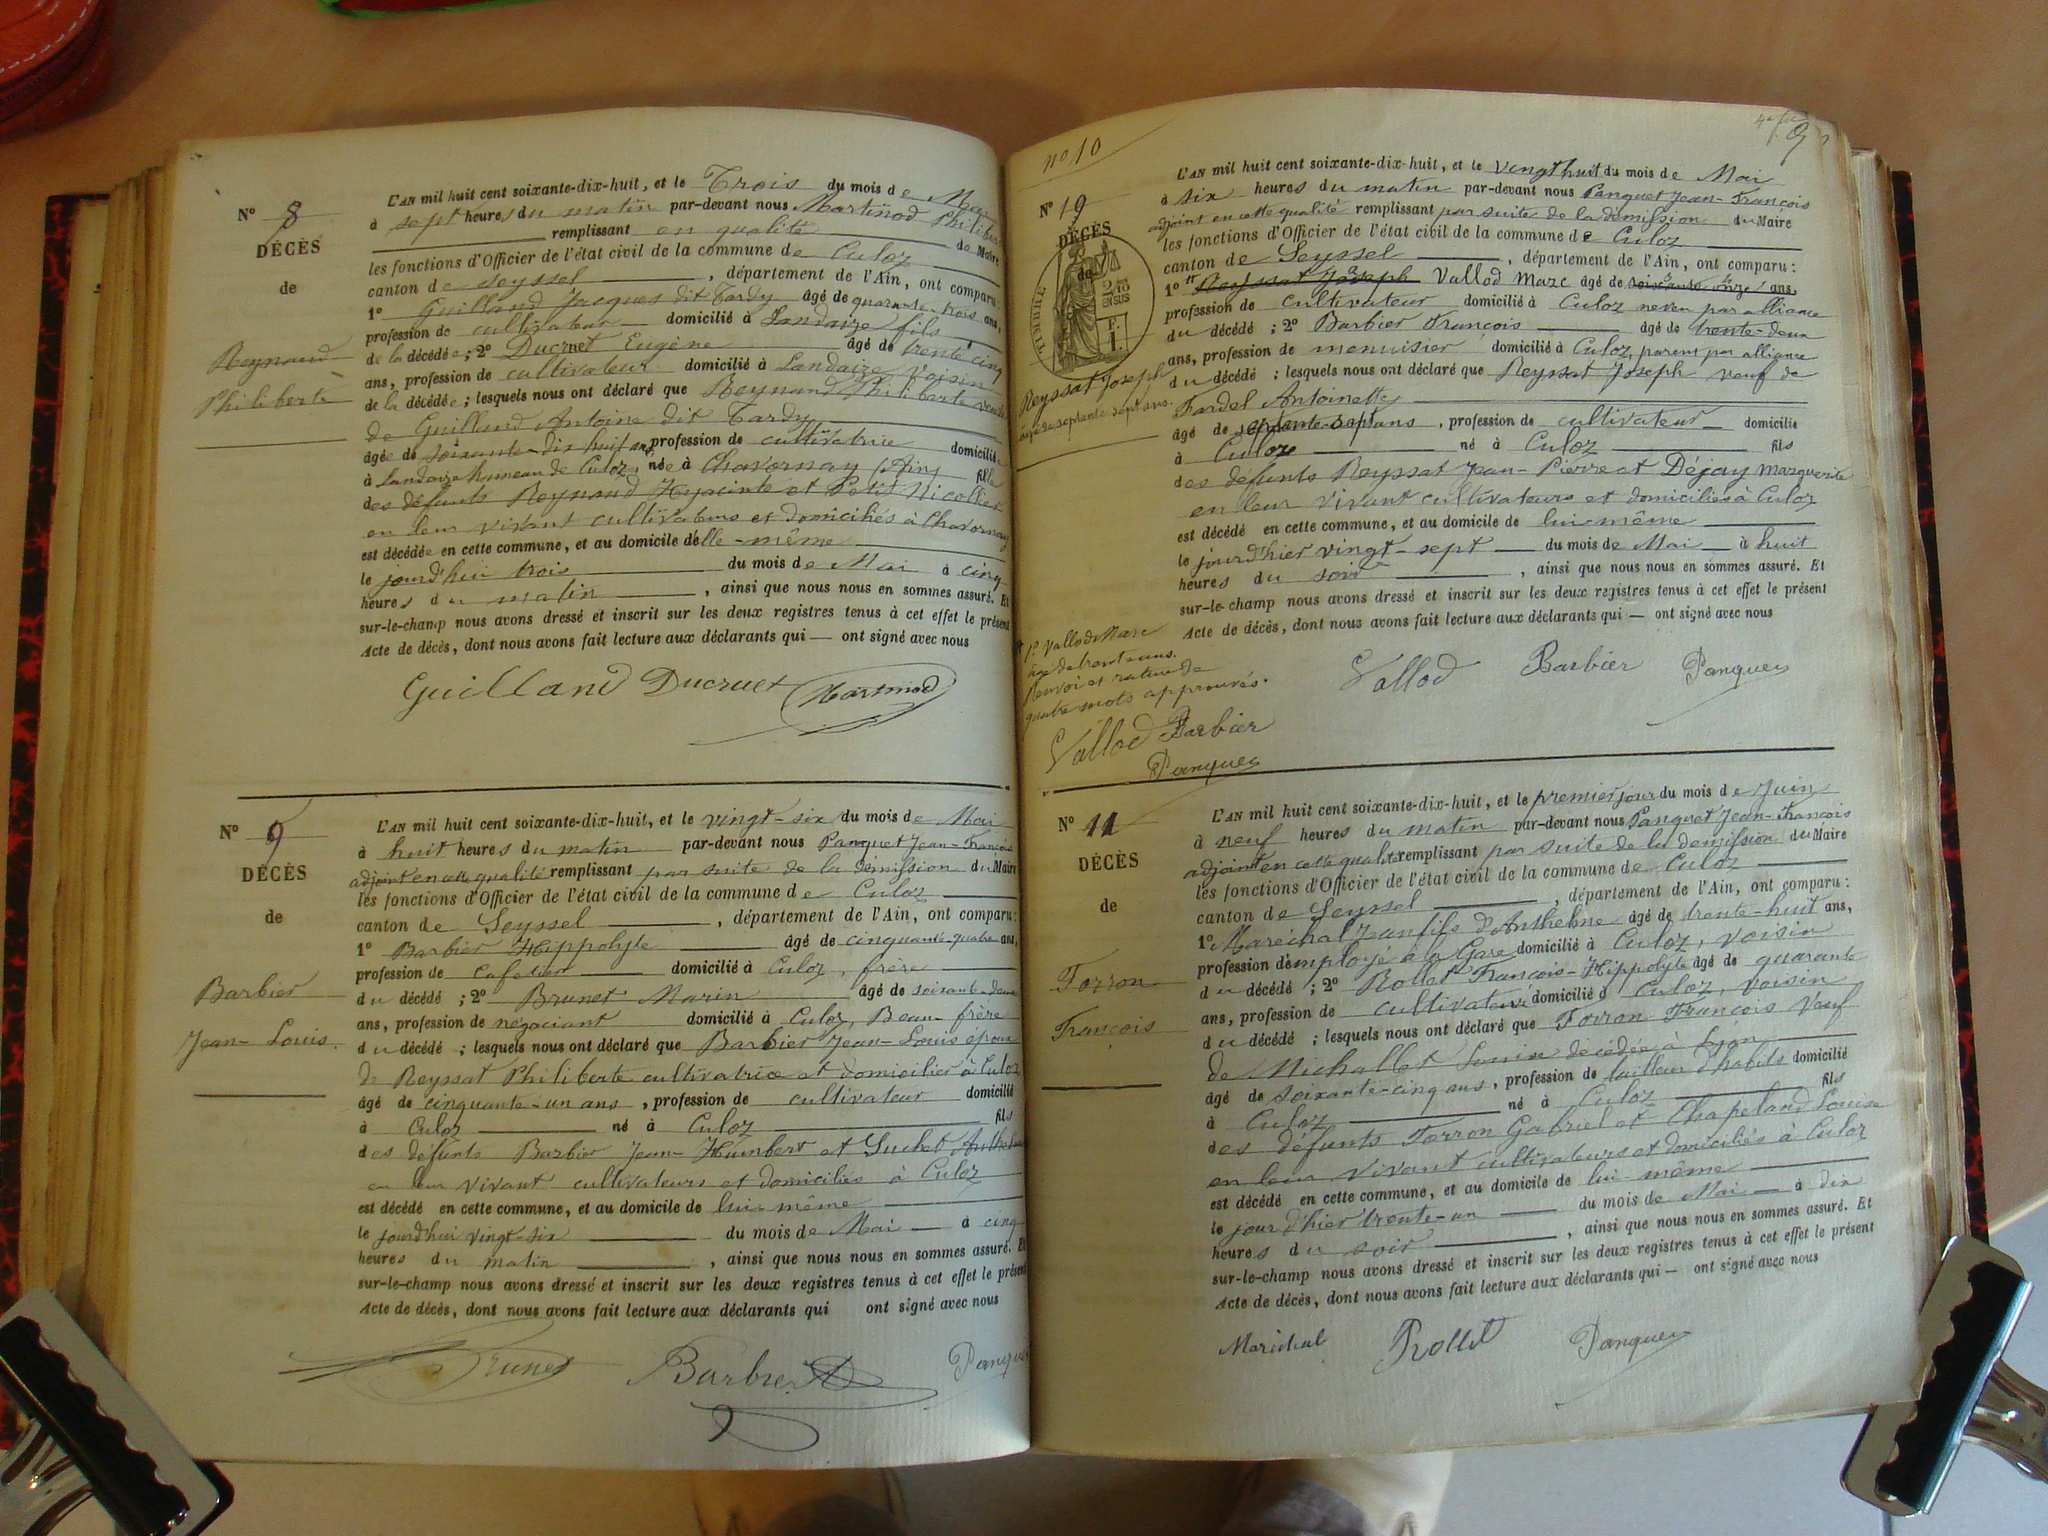 Nº 8
DÉCÈS
de
Reynaud
Philiberte
L'AN mil huit cent soixante-dix-huit, et le Trois du mois de Mai
à sept heures du matin par-devant nous Martinod Philibert
remplissant en qualité de Maire
les fonctions d'Officier de l'état civil de la commune de Culoz
canton de Seyssel, département de l'Ain, ont comparu :
1º Guilland Jacques dit Tardy âgé de quarante-trois ans,
profession de cultivateur domicilié à Landaize fils
de la décédée ; 2º Ducruet Eugène âgé de trente cinq
ans, profession de cultivateur domicilié à Landaize voisin
de la décédée ; lesquels nous ont déclaré que Reynaud Philiberte veuve
de Guilland Antoine dit Tardy
âgée de soixante-dix huit ans, profession de cultivatrice domiciliée
à Landaize hameau de Culoz, née à Chavornay (Ain) fille
des défunts Reynaud Hyacinte et Petit Nicollier
en leur vivant cultivateurs et domiciliés à Chavornay
est décédée en cette commune, et au domicile d'elle-même
le jourd'hui trois du mois de Mai à cinq
heures du matin, ainsi que nous nous en sommes assuré. Et
sur-le-champ nous avons dressé et inscrit sur les deux registres tenus à cet effet le présent
Acte de décès, dont nous avons fait lecture aux déclarants qui — ont signé avec nous
Guilland Ducruet Martinod
Nº 9
DÉCÈS
de
Barbier
Jean-Louis.
L'AN mil huit cent soixante-dix-huit, et le vingt-six du mois de Mai
à huit heures du matin par-devant nous Panquet Jean-François
adjoint en cette qualité remplissant par suite de la démission du Maire
les fonctions d'Officier de l'état civil de la commune de Culoz
canton de Seyssel, département de l'Ain, ont comparu :
1º Barbier Hippolyte âgé de cinquante-quatre ans,
profession de cafetier domicilié à Culoz, frère
du décédé ; 2º Brunet Marin âgé de soixante-deux
ans, profession de négociant domicilié à Culoz, Beau-frère
du décédé ; lesquels nous ont déclaré que Barbier Jean-Louis époux
de Reyssat Philiberte cultivatrice et domiciliée à Culoz
âgé de cinquante-un ans, profession de cultivateur domicilié
à Culoz né à Culoz fils
des défunts Barbier Jean-Humbert et Suchet
en leur vivant cultivateurs et domiciliés à Culoz
est décédé en cette commune, et au domicile de lui-même
le jourd'hui vingt-six du mois de Mai à cinq
heures du matin, ainsi que nous nous en sommes assuré. Et
sur-le-champ nous avons dressé et inscrit sur les deux registres tenus à cet effet le présent
Acte de décès, dont nous avons fait lecture aux déclarants qui ont signé avec nous
Brunet Barbier Panquet
9
nº 10
Nº 19
DÉCÈS
de
TIMBRE
2/10
EN SUS
F.
1.
Reyssat Joseph
âgé de septante sept ans.
L'AN mil huit cent soixante-dix-huit, et le vingt huit du mois de Mai
à six heures du matin par-devant nous Panquet Jean-François
adjoint en cette qualité remplissant par suite de la démission du Maire
les fonctions d'Officier de l'état civil de la commune de Culoz
canton de Seyssel, département de l'Ain, ont comparu :
1º Reyssat Joseph Vallod Marc âgé de soixante onze ans,
profession de cultivateur domicilié à Culoz neveu par alliance
du décédé ; 2º Barbier François âgé de trente-deux
ans, profession de menuisier domicilié à Culoz, parent par alliance
du décédé ; lesquels nous ont déclaré que Reyssat Joseph veuf de
Fardel Antoinette
âgé de septante-sept ans, profession de cultivateur domicilié
à Culoz né à Culoz fils
des défunts Reyssat Jean-Pierre et Déjay Marguerite
en leur vivant cultivateurs et domiciliés à Culoz
est décédé en cette commune, et au domicile de lui-même
le jourd'hier vingt-sept du mois de Mai à huit
heures du soir, ainsi que nous nous en sommes assuré. Et
sur-le-champ nous avons dressé et inscrit sur les deux registres tenus à cet effet le présent
Acte de décès, dont nous avons fait lecture aux déclarants qui — ont signé avec nous
Vallod Barbier Panquet
1º Vallod Marc
âgé de trente ans.
Renvoi et rature de
quatre mots approuvés.
Vallod Barbier
Panquet
Nº 11
DÉCÈS
de
Forron
François
L'AN mil huit cent soixante-dix-huit, et le premier jour du mois de Juin
à neuf heures du matin par-devant nous Panquet Jean-François
adjoint en cette qualité remplissant par suite de la démission du Maire
les fonctions d'Officier de l'état civil de la commune de Culoz
canton de Seyssel, département de l'Ain, ont comparu :
1º Maréchal Jean fils d'Anthelme âgé de trente-huit ans,
profession d'employé à la Gare domicilié à Culoz, voisin
du décédé ; 2º Rollet François-Hippolyte âgé de quarante
ans, profession de cultivateur domicilié à Culoz, voisin
du décédé ; lesquels nous ont déclaré que Forron François veuf
de Michallet Louise décédée à Lyon
âgé de soixante-cinq ans, profession de tailleur d'habits domicilié
à Culoz né à Culoz fils
des défunts Forron Gabriel et Chapeland Louise
en leur vivant cultivateurs et domiciliés à Culoz
est décédé en cette commune, et au domicile de lui-même
le jour d'hier trente-un du mois de Mai à dix
heures du soir, ainsi que nous nous en sommes assuré. Et
sur-le-champ nous avons dressé et inscrit sur les deux registres tenus à cet effet le présent
Acte de décès, dont nous avons fait lecture aux déclarants qui — ont signé avec nous
Maréchal Rollet Panquet